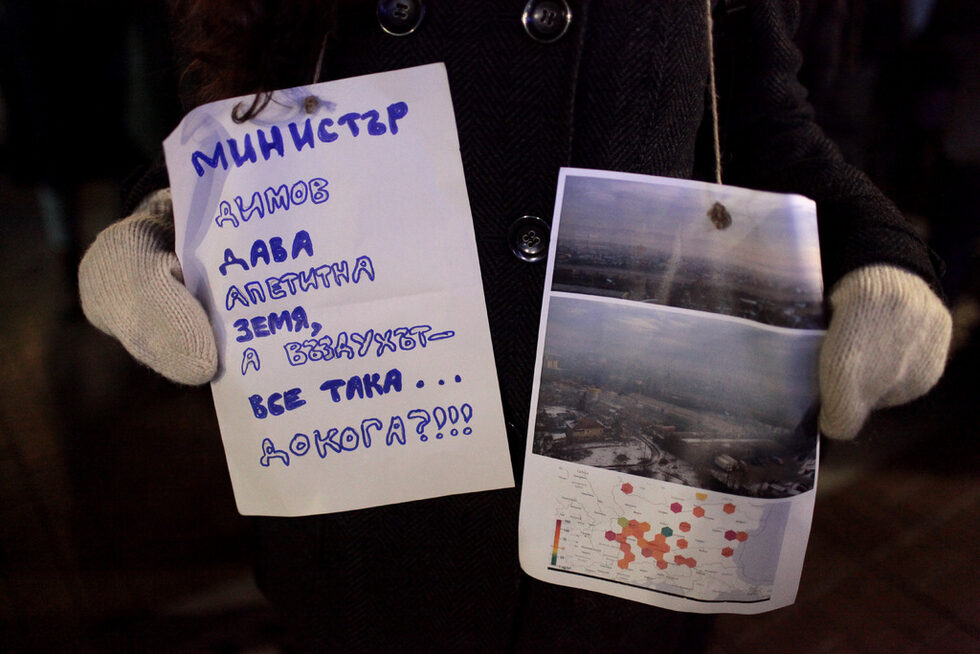 МИНИСТЪР
ДИМОВ
ДАВА
АПЕТИТНА
ЗЕМЯ,
А ВЪЗДУХЪТ—
ВСЕ ТАКА...
ДОКОГА?!!!